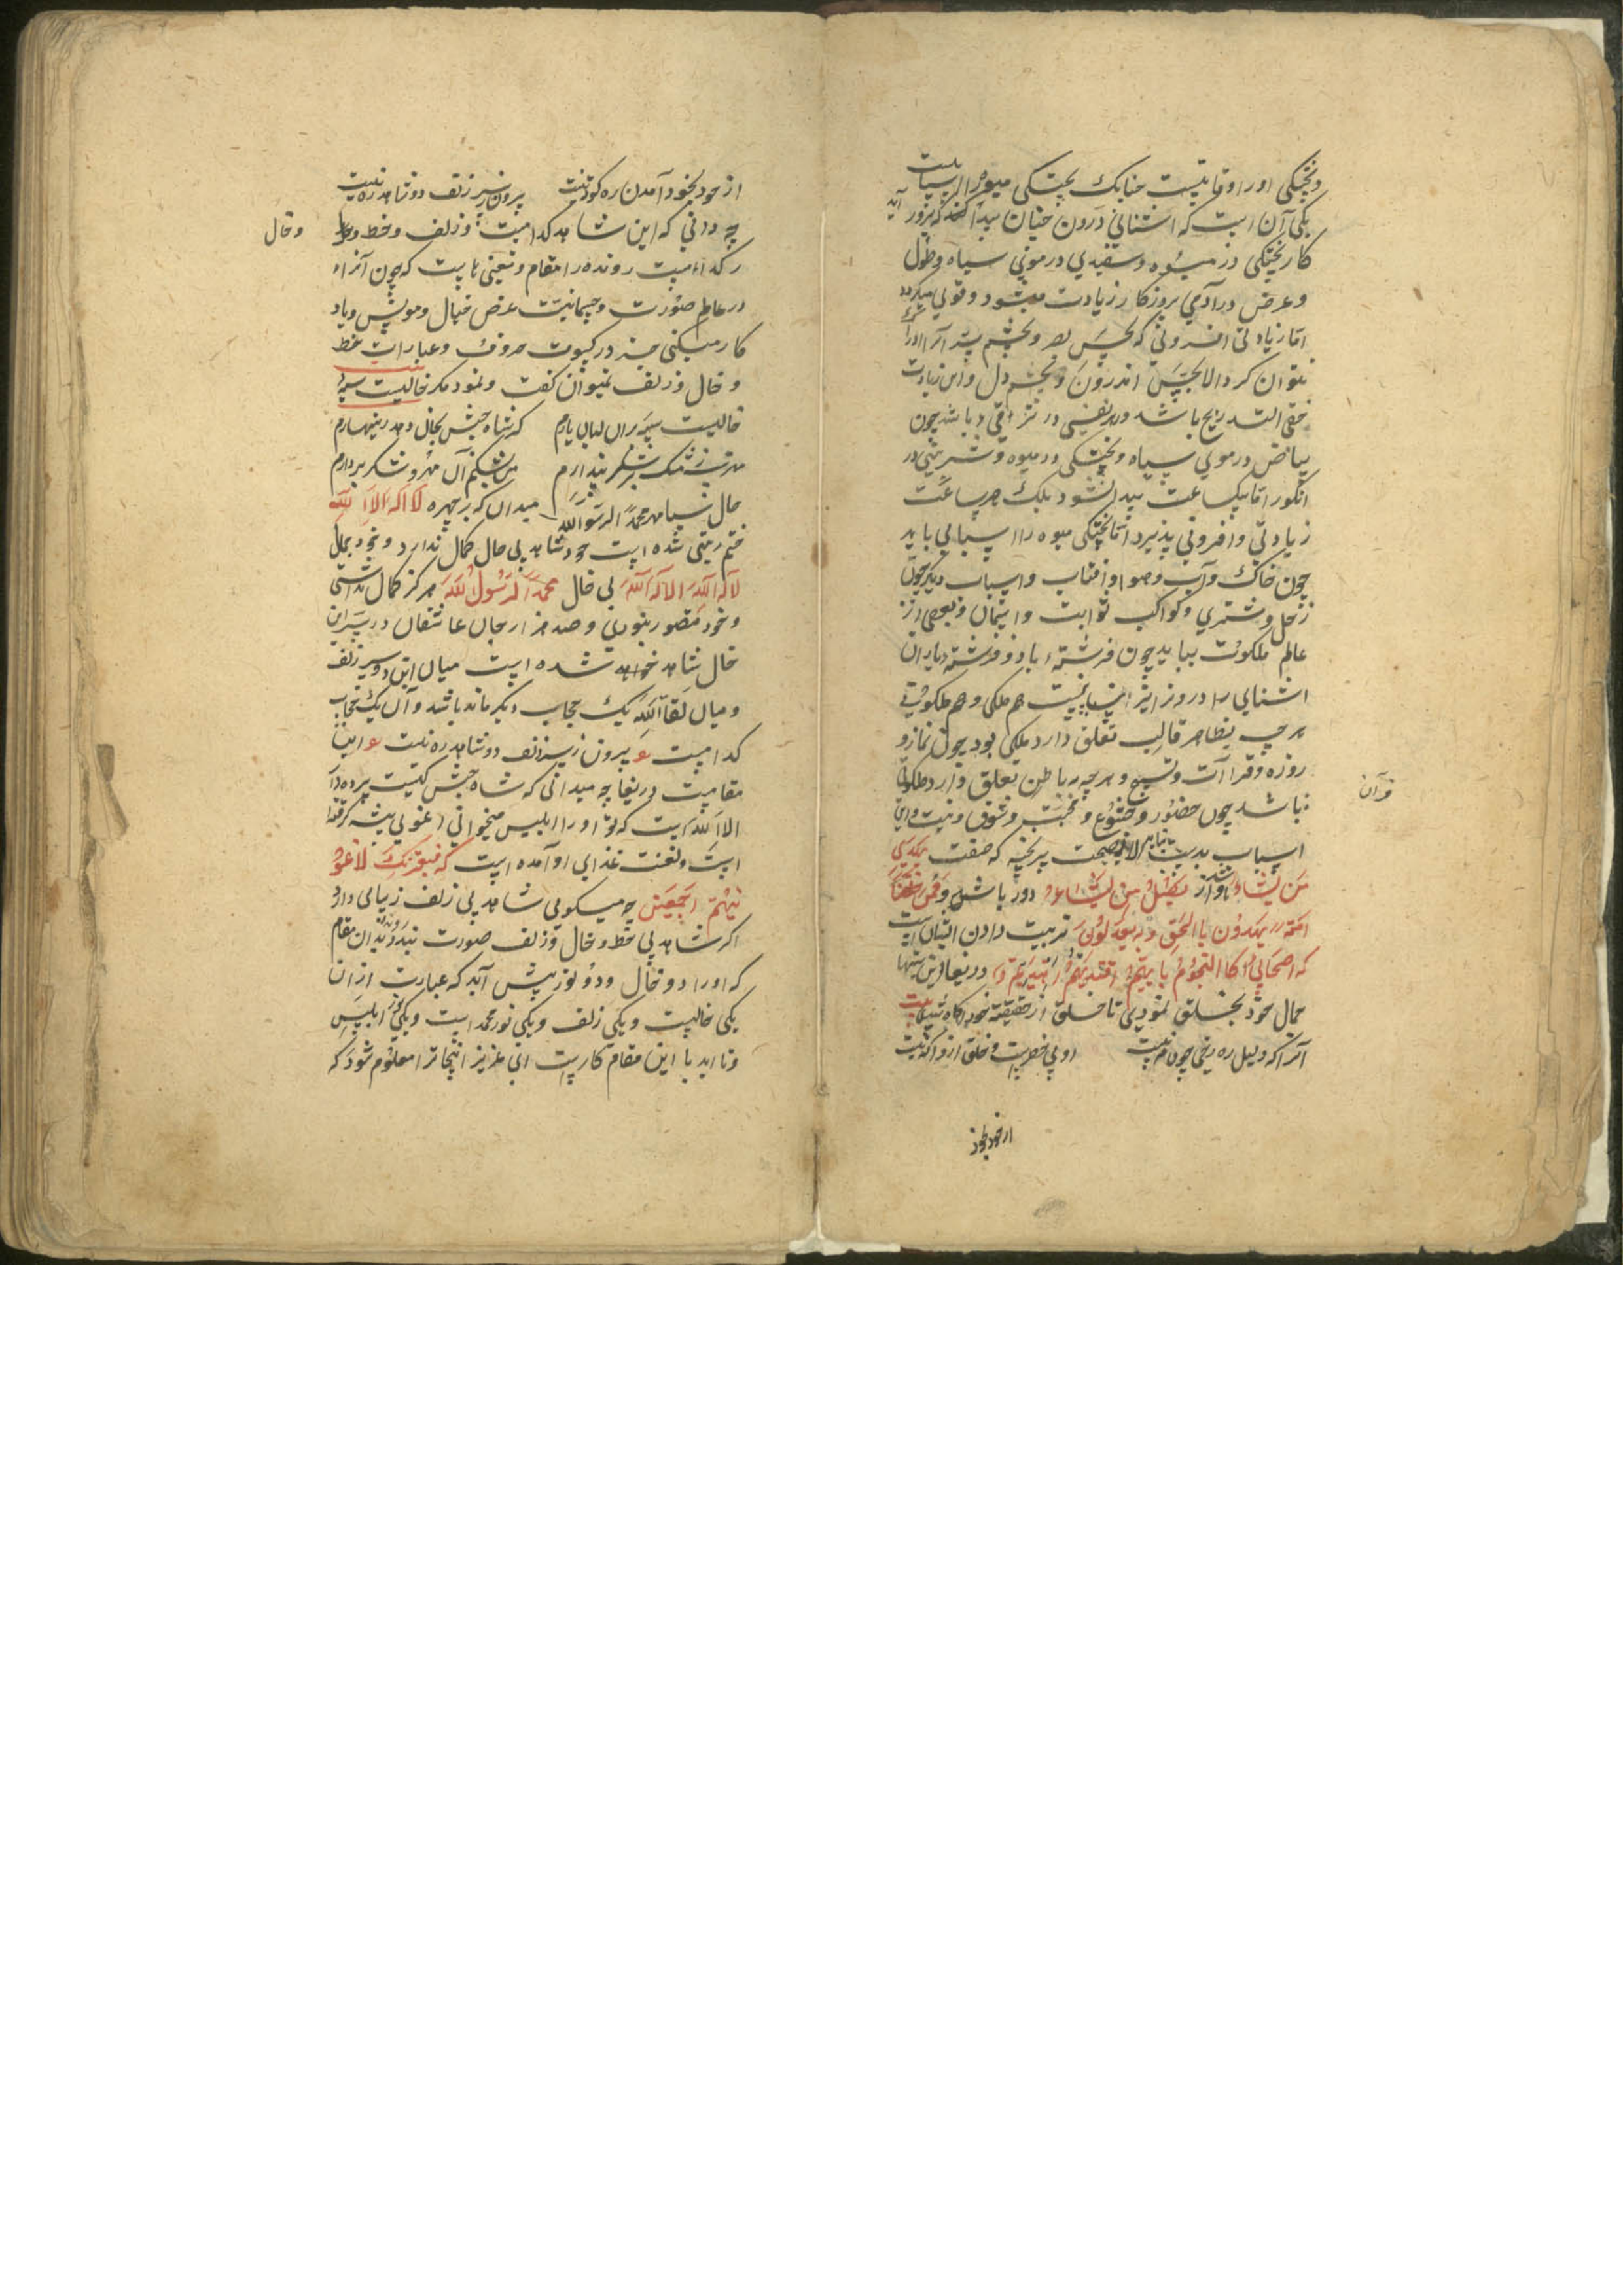 و پختگی او را اوقاتیست چنانک پختگی میوه را اسبابست
یکی آن است که اشنائی درون چنان پیدا کند که بزور آید
کار پختگی در میوه و سفیدی در موی سیاه و طول
و عرض در آدمی بروزکار زیادت میشود و قوی میکردد
اما زیادتی افزونی که بحس بصر و بچشم سر آنرا ادراک
نتوان کرد الا بحس اندرون و بچشم دل و این زیادت
خفی التدریج باشد و هر نفسی در ترقی باشد چون
بیاض در موی سیاه و پختگی در میوه و شیرینی در
انکور اما بیکساعت پیدا نشود بلک هر ساعت
زیادتی و افزونی پذیرد اما پختگی میوه را اسبابی باید
چون خاک و آب و هوا و آفتاب و اسباب دیگر چون
زحل و مشتری و کواکب ثوابت و اسمان و بعضی از
عالم ملکوت بباید چون فرشته باد و فرشته باران
اشنایی را در ونیز این اسبابیست هم ملکی و هم ملکوتی
هر چه بظاهر قالب تعلق دارد ملکی بود چون نماز و
روزه و قراآت و تسبیح و هر چه بباطن تعلق دارد ملکوتی
قرآن
باشد چون حضور و خشوع و محبت و شوق و نیت و این
اسباب بدست نیاید الا بصحبت پیر پخته که صفت یهدی
من یشاء باو از یضل من یشاء دور باشد و ممن خلقنا
امة یهدون بالحق و به یعدلون تربیت دادن ایشان است
که اصحابی کالنجوم بایهم اقتدیتم اهتدیتم دریغا
جمال خود بخلق نمودی تا خلق از حقیقت خود آگاه شدی بیت
آنرا که دلیل ره رخی چون مه نیست
او بی خطرست و خلق ازو آگه نیست
از خود بخود
از خود بخود آمدن ره کوته نیست
بیرون ز سر زلف دو شاهد ره نیست
چه دانی که این شاهد کدامست و زلف و خط و
و خال
کدامست رونده را مقام و معنی هاست که چون آنرا
در عالم صورت و جسمانیت عرض خیال و مونس و یاد
کار میکنی جز در کسوت حروف و عبارات خط
و خال و زلف نمیوان گفت و نمود مکر خالیست سیه
خالیست سیه بران لبان یارم
مهریست ز مشک بر شکر پندارم
که شاه حبش بجان دهد زینهارم
من بشکنم آن مهر و شکر بردارم
خال سیاه مهر محمد الرسول الله میدان که بر چهره لا اله الا الله
ختم زینتی شده است خود شاهد بی خال کمال ندارد و خود جمال
لا اله الا الله بی خال محمد الرسول الله هرکز کمال نداشتی
و خود متصور نبودی و صد هزار جان عاشقان در سر این
خال شاهد خواهد شده است میان این دو سر زلف
و میان لقاء الله یک حجاب دیکر مانده باشد و آن یک حجاب
کدامست ع بیرون ز سر زلف دو شاهد ره نیست ع این
مقامیست دریغا چه میدانی که شاه حبش کیست پرده دار
الا الله است که تو او را ابلیس میخوانی اغوا پیشه کرفته
است و لعنت غذای او آمده است که فبعزتک لاغوی
نهم اجمعین چه میکوئی شاهد بی زلف زیبائی دارد
اگر شاهد بی خط و خال و زلف صورت نبندد بدان مقام
که او را دو خال و دو نور پیش آید که عبارت از آن
یکی خالیست و یکی زلف و یکی نور محمد است و یکی نور ابلیس
و تا ابد با این مقام کارست ای عزیز اینجا ترا معلوم شود که